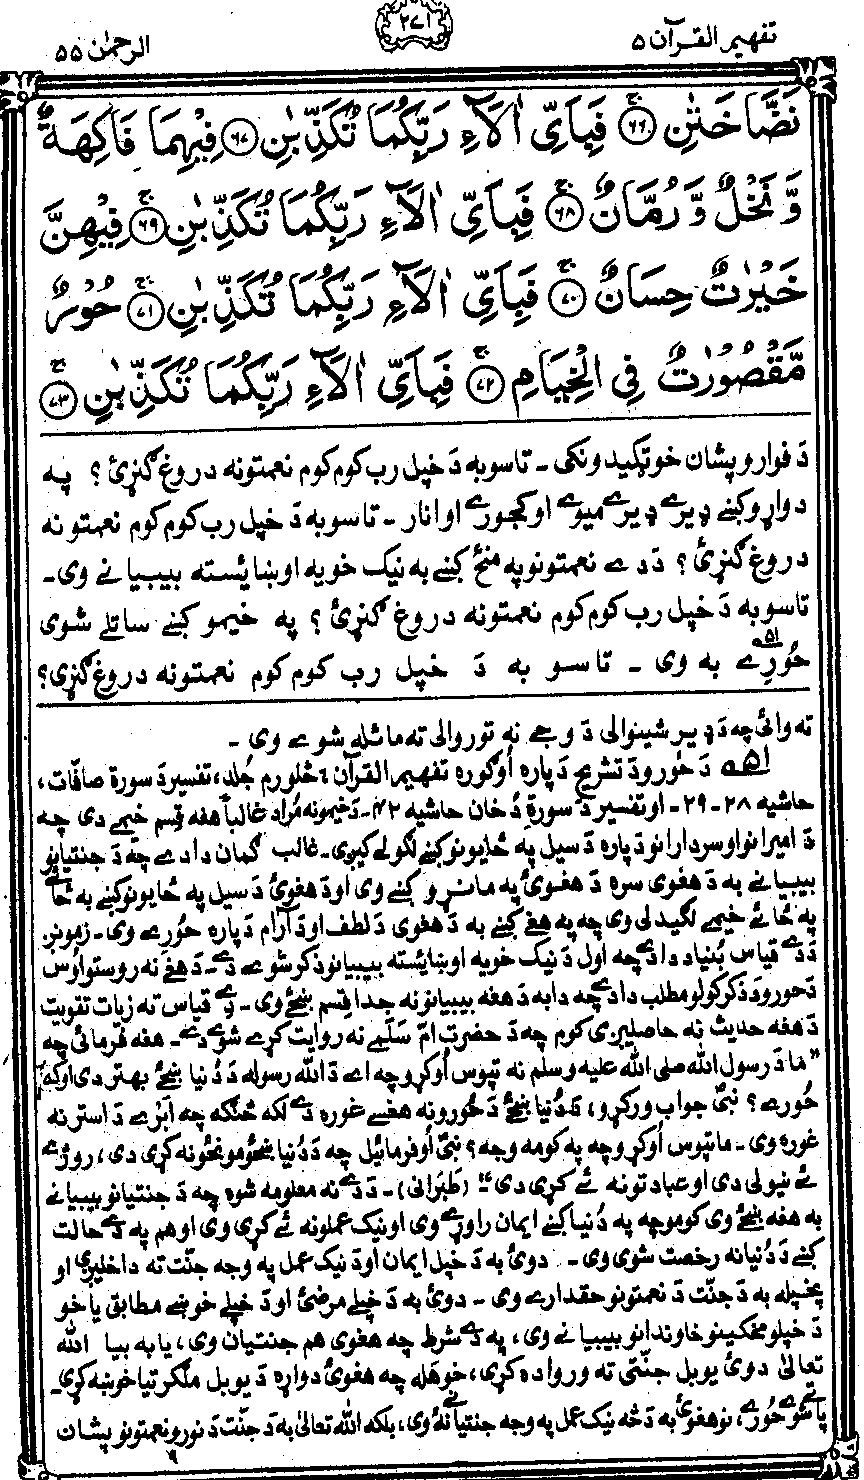 تفهیم القرآن ۵
۲۷۱
الرحمٰن ۵۵
نَضَّاخَتٰنِ ﴿۶۶﴾ فَبِاَيِّ اٰلَآءِ رَبِّكُمَا تُكَذِّبٰنِ ﴿۶۷﴾ فِيْهِمَا فَاكِهَةٌ
وَّ نَخْلٌ وَّ رُمَّانٌ ﴿۶۸﴾ فَبِاَيِّ اٰلَآءِ رَبِّكُمَا تُكَذِّبٰنِ ﴿۶۹﴾ فِيْهِنَّ
خَيْرٰتٌ حِسَانٌ ﴿۷۰﴾ فَبِاَيِّ اٰلَآءِ رَبِّكُمَا تُكَذِّبٰنِ ﴿۷۱﴾ حُوْرٌ
مَّقْصُوْرٰتٌ فِي الْخِيَامِ ﴿۷۲﴾ فَبِاَيِّ اٰلَآءِ رَبِّكُمَا تُكَذِّبٰنِ ﴿۷۳﴾
دَ فوارو پشان خوټکیدونکی ۔ تاسو به دَ خپل رب کوم کوم نعمتونه دروغ ګنړئ ؟ په
دواړو کښے ډیرے ډیرے میوے او کجورے او انار ۔ تاسو به دَ خپل رب کوم کوم نعمتونه
دروغ ګنړئ ؟ دَ دے نعمتونو په منځ کښے به نیک خویه او ښائسته بیبیانے وی۔
تاسو به دَ خپل رب کوم کوم نعمتونه دروغ ګنړئ ؟ په خیمو کښے ساتلے شوی
حُورے ۵۱ به وی ۔ تاسو به دَ خپل رب کوم کوم نعمتونه دروغ ګنړی؟
ته وائی چه دَ ډیر شینوالی دَ وجے نه تور والی ته مائله شوے وی ۔
۵۱ دَ حُورو دَ تشریح دَ پاره اُوګوره تفهیم القرآن څلورم جُلد، تفسیر دَ سورة صافّات،
حاشیه ۲۸ - ۲۹ ۔ او تفسیر دَ سورة دُخان حاشیه ۴۲۔ دَ خیمو نه مُراد غالباً هغه قِسم خیمے دی چه
دَ امیرانو او سردارانو دَ پاره دَ سیل په ځایونو کښے لګولے کیږی۔ غالب ګمان دا دے چه دَ جنتیانو
بیبیانے به دَ هغوی سره دَ هغوئ په ماڼرو کښے وی او دَ هغوئ دَ سیل په ځایونو کښے به ځائے
په ځائے خیمے لګیدلی وی چه په هغے کښے به دَ هغوی دَ لطف او دَ آرام دَ پاره حُورے وی۔ زمونږ
دَ دے قیاس بُنیاد دا دے چه اول دَ نیک خویه او ښائسته بیبیانو ذکر شوے دے۔ دَ هغے نه روستو اوس
دَ حورو دَ ذکر کولو مطلب دا دے چه دا به دَ هغه بیبیانو نه جدا قِسم ښځے وی ۔ دے قیاس ته زیات تقویت
دَ هغه حدیث نه حاصلیږی کوم چه دَ حضرت امّ سَلَمےؓ نه روایت کړے شوے دے۔ هغه فرمائی چه
”ما دَ رسول الله صلی الله علیه وسلم نه تپوس اُوکړو چه اے دَ الله رسوله دَ دُنیا ښځے بهتر دی او که
حُورے؟ نبیؐ جواب ورکړو، دَ دُنیا ښځے دَ حُورو نه هغسے غوره دے لکه څنګه چه اَبرے دَ استر نه
غوره وی ۔ ما تپوس اُوکړو چه په کومه وجه؟ نبیؐ اُوفرمائیل چه دَ دُنیا ښځو مونځونه کړی دی، روژے
ئے نیولی دی او عبادتونه ئے کړی دی“ (طَبَرانی)۔ دَ دے نه معلومه شوه چه دَ جنتیانو بیبیانے
به هغه ښځے وی کومو چه په دُنیا کښے ایمان راوړے وی او نیک عملونه ئے کړی وی او هم په دے حالت
کښے دَ دُنیا نه رخصت شوی وی ۔ دوئ به دَ خپل ایمان او دَ نیک عمل په وجه جنّت ته داخلیږی او
پخپله به دَ جنّت دَ نعمتونو حقدارے وی ۔ دوئ به دَ خپلے مرضئ او دَ خپلے خوښے مطابق یا خو
دَ خپلو مخکینو خاوندانو بیبیانے وی، په دے شرط چه هغوی هم جنتیان وی، یا به بیا الله
تعالیٰ دوئ یو بل جنّتی ته ورواده کړی، خو هله چه هغوئ دواړه دَ یو بل ملګرتیا خوښه کړی۔
پاتے شوے حُورے، نو هغوئ به دَ څه نیک عمل په وجه جنتیانے نهٔ وی، بلکه الله تعالیٰ به دَ جنّت دَ نورو نعمتونو پشان
۹